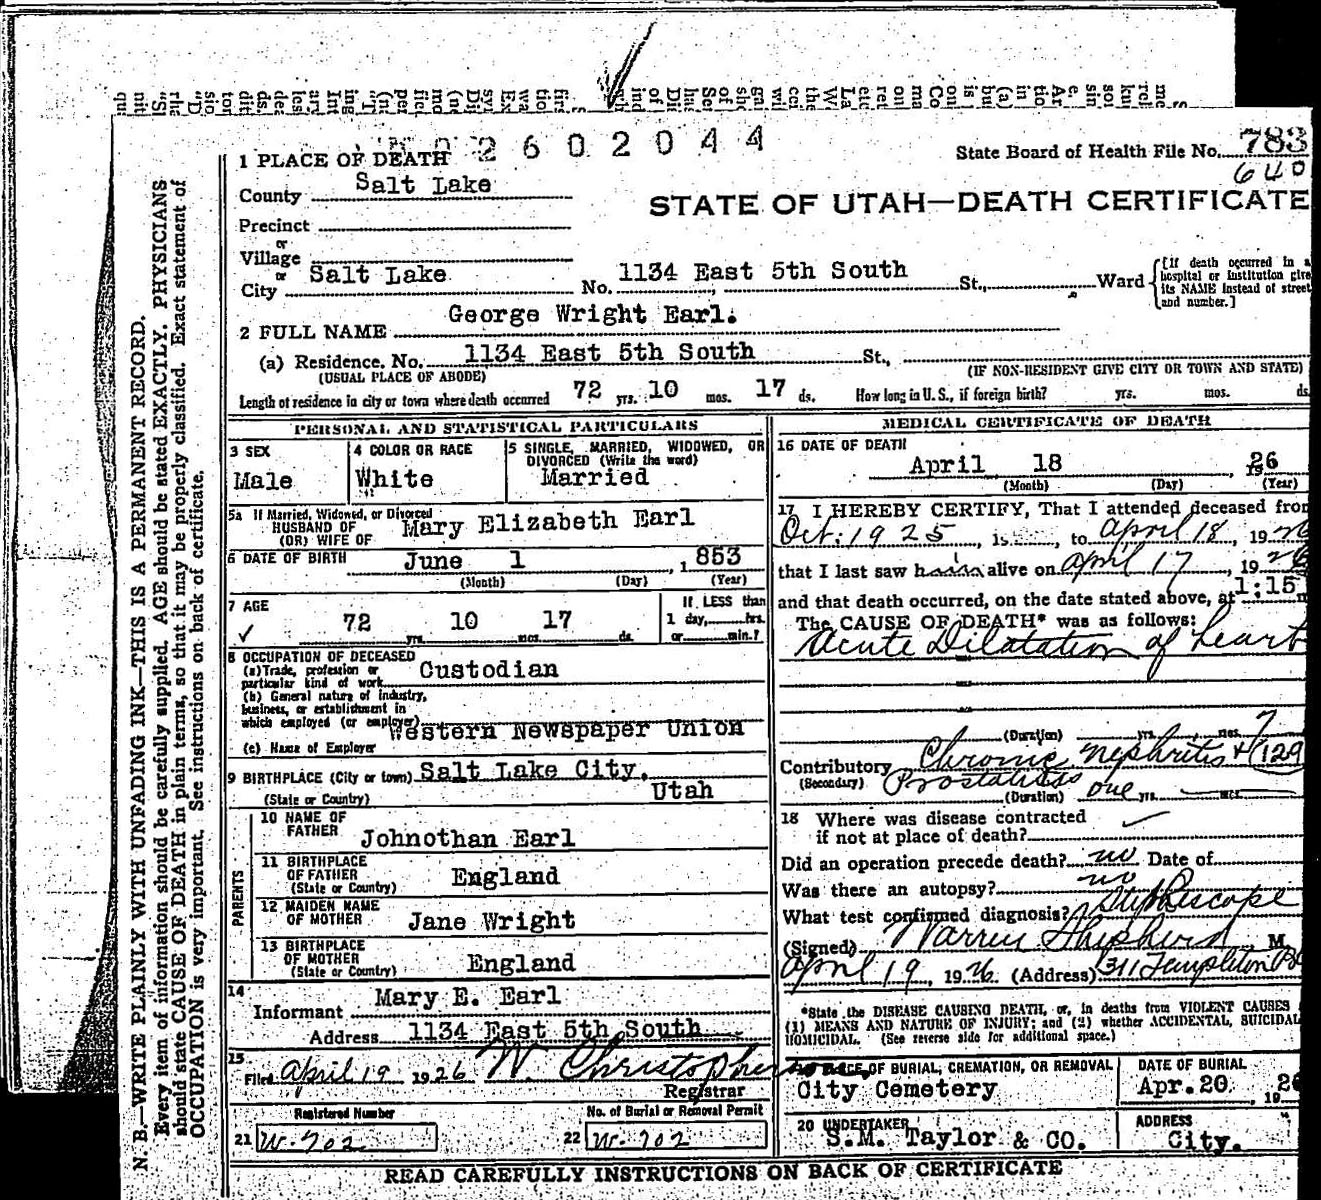 2602044
State Board of Health File No. 783
640
1 PLACE OF DEATH
County Salt Lake
STATE OF UTAH—DEATH CERTIFICATE
Precinct
or
Village
or
City Salt Lake No. 1134 East 5th South St., Ward
[If death occurred in a
hospital or institution give
its NAME instead of street
and number.]
2 FULL NAME George Wright Earl.
(a) Residence. No. 1134 East 5th South St.,
(USUAL PLACE OF ABODE) (IF NON-RESIDENT GIVE CITY OR TOWN AND STATE)
Length of residence in city or town where death occurred 72 yrs. 10 mos. 17 ds. How long in U. S., if foreign birth? yrs. mos. ds.
PERSONAL AND STATISTICAL PARTICULARS
3 SEX
Male
4 COLOR OR RACE
White
5 SINGLE, MARRIED, WIDOWED, OR
DIVORCED (Write the word)
Married
5a If Married, Widowed, or Divorced
HUSBAND OF
(OR) WIFE OF Mary Elizabeth Earl
6 DATE OF BIRTH June 1, 1853
(Month) (Day) (Year)
7 AGE
72 yrs. 10 mos. 17 ds.
If LESS than
1 day, hrs.
or min.?
8 OCCUPATION OF DECEASED
(a) Trade, profession or
particular kind of work Custodian
(b) General nature of industry,
business, or establishment in
which employed (or employer) Western Newspaper Union
(c) Name of Employer
9 BIRTHPLACE (City or town) Salt Lake City,
(State or Country) Utah
PARENTS
10 NAME OF
FATHER Johnothan Earl
11 BIRTHPLACE
OF FATHER England
(State or Country)
12 MAIDEN NAME
OF MOTHER Jane Wright
13 BIRTHPLACE
OF MOTHER England
(State or Country)
14
Informant Mary E. Earl
Address 1134 East 5th South
15
Filed April 19 1926 W. Christopherson
Registrar
Registered Number
21 W-702
No. of Burial or Removal Permit
22 W-702
MEDICAL CERTIFICATE OF DEATH
16 DATE OF DEATH
April 18, 1926
(Month) (Day) (Year)
17 I HEREBY CERTIFY, That I attended deceased from
Oct. 1925, to April 18, 1926
that I last saw him alive on April 17, 1926
and that death occurred, on the date stated above, at 1:15 m
The CAUSE OF DEATH* was as follows:
Acute Dilatation of heart
(Duration) yrs. mos. 7
Contributory Chronic nephritis & 129
(Secondary) Prostatitis
(Duration) one yrs. mos.
18 Where was disease contracted
if not at place of death?
Did an operation precede death? no Date of
Was there an autopsy? no
What test confirmed diagnosis? Stethescope
(Signed) Warren Shepherd, M.
April 19, 1926 (Address) 311 Templeton
*State the DISEASE CAUSING DEATH, or, in deaths from VIOLENT CAUSES
(1) MEANS AND NATURE OF INJURY; and (2) whether ACCIDENTAL, SUICIDAL
HOMICIDAL. (See reverse side for additional space.)
PLACE OF BURIAL, CREMATION, OR REMOVAL
City Cemetery
DATE OF BURIAL
Apr. 20, 1926
20 UNDERTAKER
S.M. Taylor & CO.
ADDRESS
City.
READ CAREFULLY INSTRUCTIONS ON BACK OF CERTIFICATE
N. B.—WRITE PLAINLY WITH UNFADING INK—THIS IS A PERMANENT RECORD.
Every item of information should be carefully supplied. AGE should be stated EXACTLY. PHYSICIANS
should state CAUSE OF DEATH in plain terms, so that it may be properly classified. Exact statement of
OCCUPATION is very important. See instructions on back of certificate.